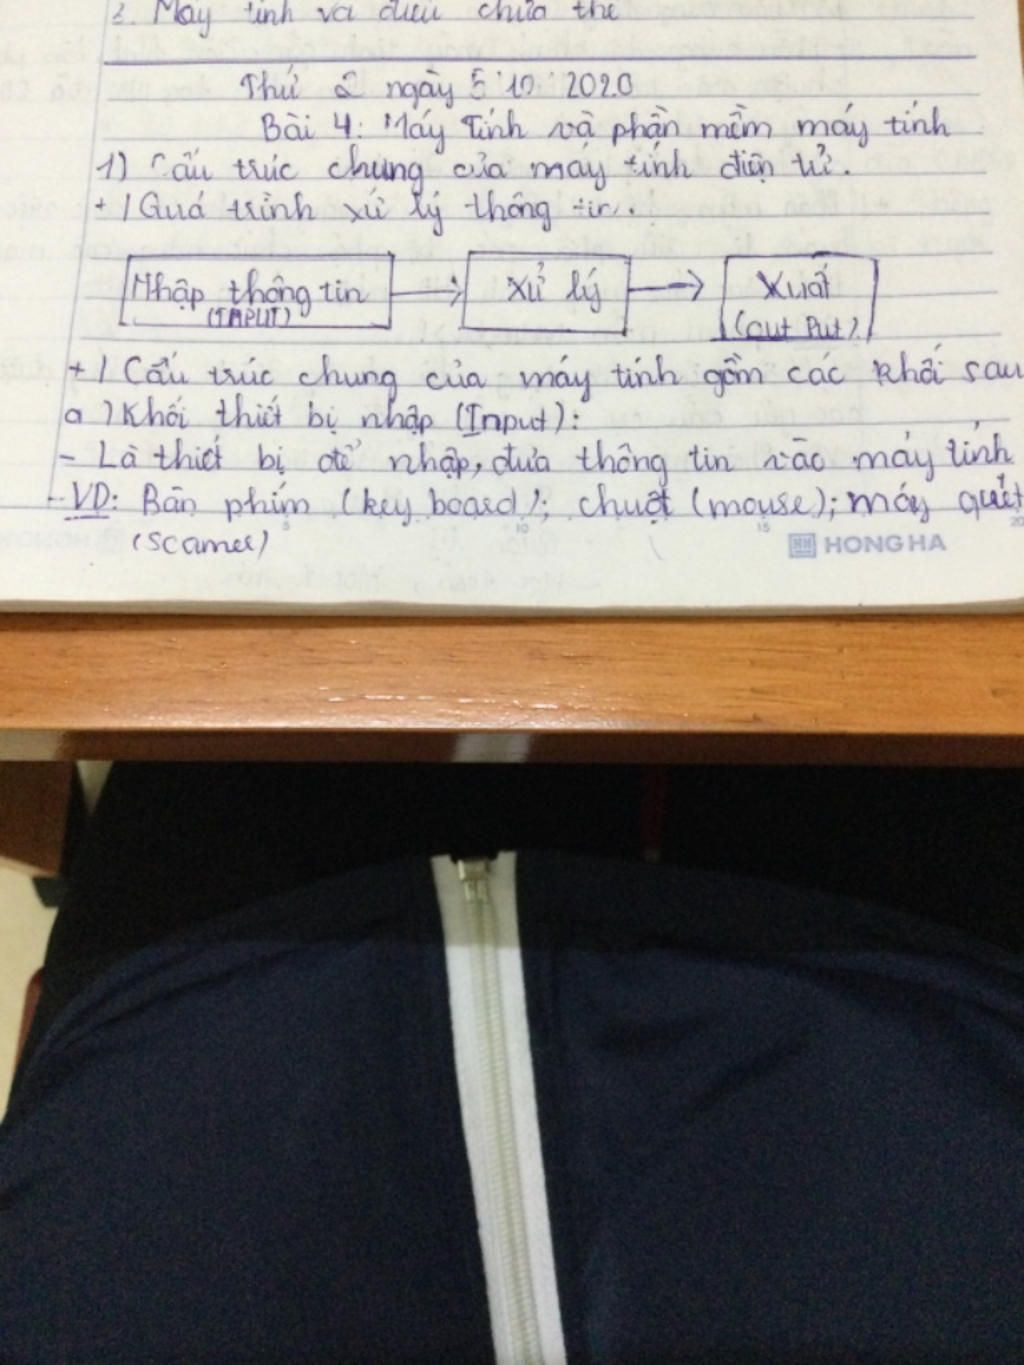 2. Máy tính và điều chưa thể
Thứ 2 ngày 5.10.2020
Bài 4: Máy Tính và phần mềm máy tính
1) Cấu trúc chung của máy tính điện tử.
+) Quá trình xử lý thông tin.
Nhập thông tin
(INPUT)
Xử lý
Xuất
(out Put)
+) Cấu trúc chung của máy tính gồm các khối sau
a) Khối thiết bị nhập (Input):
- Là thiết bị để nhập, đưa thông tin vào máy tính
- VD: Bàn phím (key board); chuột (mouse); máy quét
(scamer)
5 10 15 20
HH HONG HA